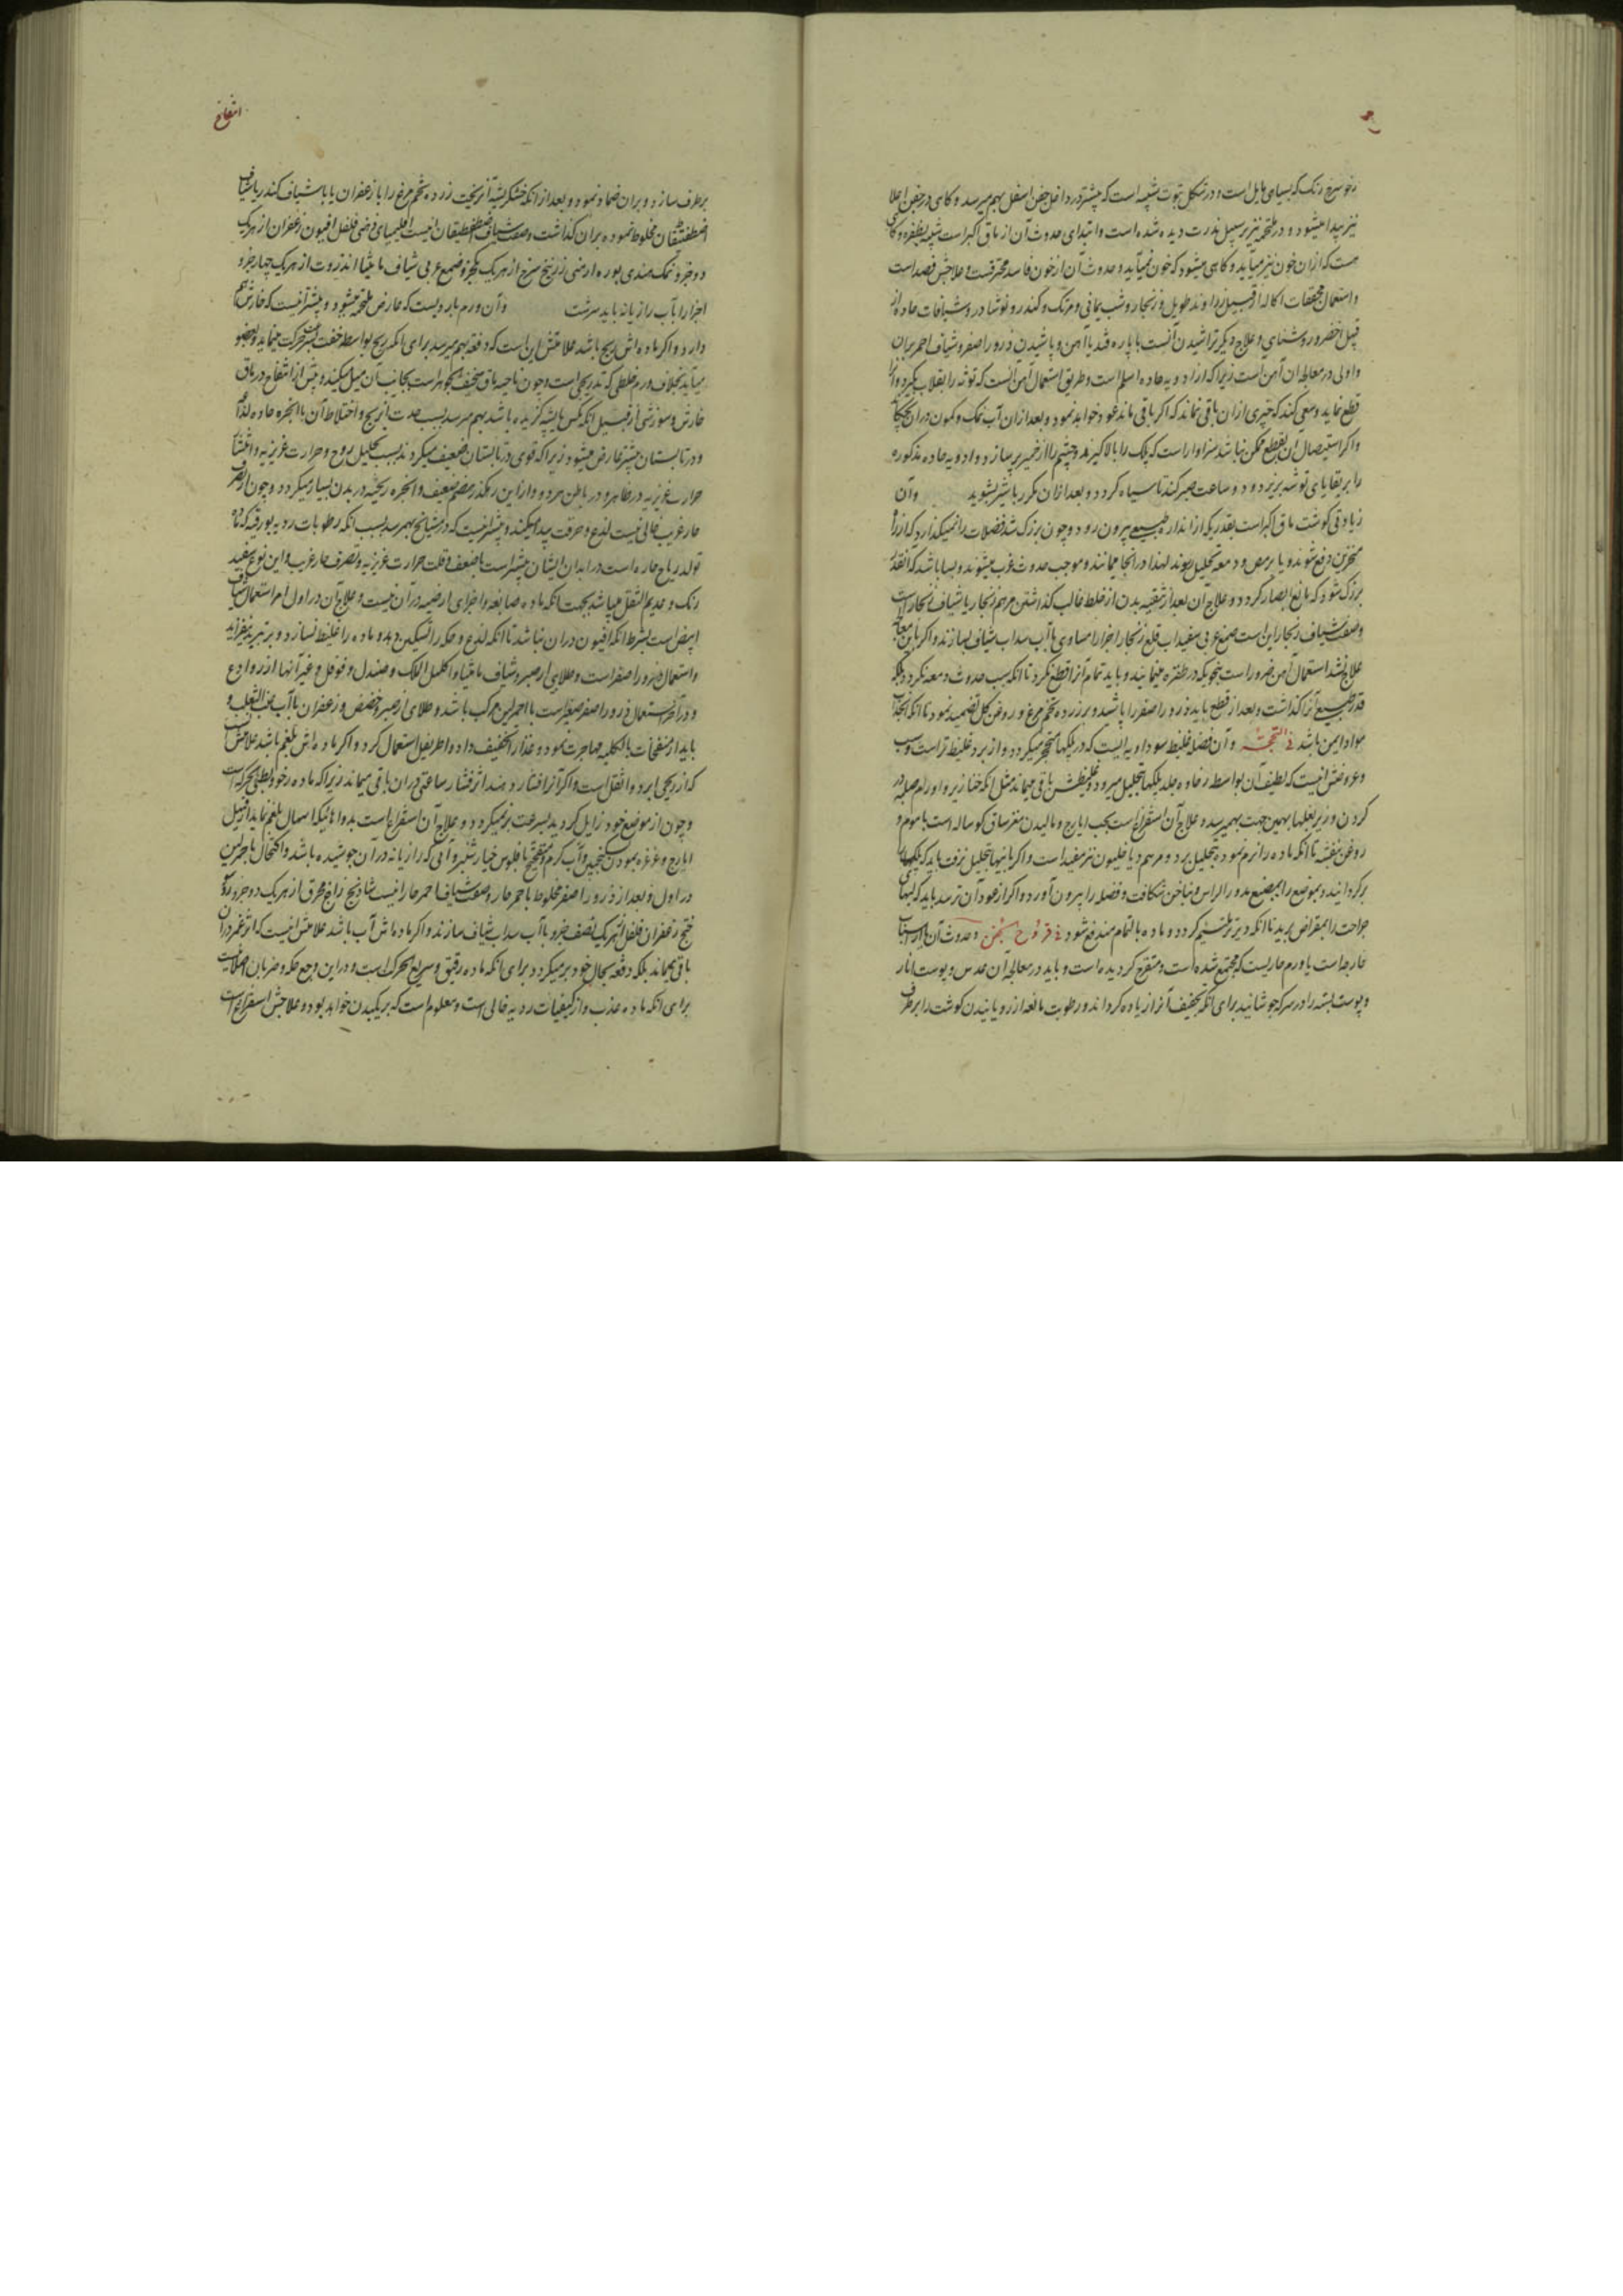 رخو سرخ رنگ که بسیاهی مایل است و در شکل بتوت شبیه است که بیشتر در داخل جفن اسفل بهم میرسد و کاهی در جفن اعلا
نیز پیدا میشود و در ملتحمه نیز بر سبیل ندرت دیده شده است و ابتدای حدوث آن از ماق اکبر است شبیه بظفره و کاهی
هست که ازان خون نیز میآید و کاهی میشود که خون نمیآید و حدوث آن از خون فاسد محترقست و علاجش فصد است
و استعمال مجففات اکاله از قبیل زراوند طویل و زنجار و شب یمانی و مرتک و کندر و نوشادر و شیافات حاده از
قبیل اخضر و روشنای و علاج دیکر تراشیدن آنست با پاره قند یا آهن و پاشیدن ذرور اصفر و شیاف احمر بران
و اولی در معالجه ان آهن است زیرا که از ادویه حاده اسلم است و طریق استعمال آهن آنست که توثه را بقلاب بگیرد و آنرا
قطع نماید و سعی کند که چیزی ازان باقی نماند که اکر باقی ماند عود خواهد نمود و بعد ازان آب نمک و کمون دران بچکاند
و اکر استیصال ان بقطع ممکن نباشد سزاوار است که پلک را بالا گیرند و چشم را از خمیر پر سازد و ادویه حاده مذکوره
را بر بقایای توثه بریزد و دو ساعت صبر کند تا سیاه کردد و بعد ازان مکرر با شیر بشوید وآن
زیادتی کوشت ماق اکبر است بقدریکه از اندازه طبیعی بیرون رود و چون بزرک شد فضلات را نمیکذارد که از راه
منخرین دفع شوند و یا بر مص و دمعه تحلیل روند لهذا در انجا میمانند و موجب حدوث غرب میشوند و بسا باشد که انقدر
بزرک شود که مانع ابصار کردد و علاج آن بعد از تنقیه بدن از خلط غالب کذاشتن مرهم زنجار یا شیاف زنجار است
وصفت شیاف زنجار این است صمغ عربی سفیداب قلع زنجار اجزا را مساوی با آب سداب شیاف بسازند و اکر باین معالجه
علاج نشد استعمال آهن ضرور است بنحویکه در ظفره مینمایند و باید تمام آنرا قطع نکرد تا انکه سبب حدوث دمعه نکردد بلکه
قدر طبیعی آنرا کذاشت و بعد از قطع باید ذرور اصفر را پاشید و بر زرده تخم مرغ و روغن کل تضمید نمود تا انکه از انجذاب
مواد ایمن باشد فی التحجر و آن فضل غلیظ سوداویه ایست که در پلکها متحجر میکردد و از برد غلیظ تر است و سبب
و عروضش اینست که لطیف آن بواسطه رخاوه جلد پلکها بتحلیل میرود و غلیظش باقی میماند مثل انکه خنازیر و اورام صلبه در
کردن و زیر بغلها بهمین جهت بهمیرسد و علاج آن استفراغست بحب ایارج و مالیدن مغز ساق کوساله است با موم و
روغن بنفشه تا انکه ماده را نرم نموده بتحلیل برد و مرهم دیاخلیون نیز مفید است و اکر باینها بتحلیل نرفت باید که پلکها را
برکردانید و موضع را بمبضع مدور الراس و بناخن شکافت و فضله را بیرون آورد و اکر از عود آن ترسد باید که لبهای
جراحت را بمقراض برید تا انکه دیرتر ملتئم کردد و ماده بالتمام مندفع شود فی قروح الجفن و حدوث آن یا از اسباب
خارجه است یا ورم حاریست که مجتمع شده است و متقرح کردیده است و باید در معالجه آن عدس و پوست انار
و پوست پسته را در سرکه جوشانید برای انکه تجفیف آنرا زیاده کرداند و رطوبت مانعه از رویانیدن کوشت را برطرف
انتفاخ
برطرف سازد و بران ضماد نمود و بعد از انکه خشکریشه آن ریخت زرده تخم مرغ را با زعفران یا با شیاف کندر یا شیاف
اصطفطیقان مخلوط نموده بران کذاشت وصفت شیاف اصطفطیقان اینست اقلیمیای فضی فلفل افیون زعفران از هریک
دو جزو نمک هندی بوره ارمنی زرنیخ سرخ از هریک یکجزو صمغ عربی شیاف مامیثا انزروت از هریک چهار جزو
اجزا را بآب رازیانه باید سرشت وآن ورم باردیست که عارض ملتحمه میشود و بیشتر اینست که خارش هم
دارد و اکر ماده اش ریح باشد علامتش این است که دفعة بهم میرسد برای انکه ریح بواسطه خفت بسرعت حرکت مینماید و بعضو
میآید بخلاف ورم خلطی که تدریجی است و چون ناحیه ماق سخیف الجوهر است بجانب آن میل میکند و پیش از انتفاخ در ماق
خارش و سوزشی از قبیل انکه مکس یا پشه کزیده باشد بهم میرسد بسبب حدت ان ریح و اختلاط آن با ابخره حاده لذاعه
و در تابستان بیشتر عارض میشود زیرا که قوی در تابستان ضعیف میکردند بسبب تحلیل روح و حرارت غریزیه و انتشار
حرارت غریزیه در ظاهر و در باطن سرد و ازاین رهکذر هضم ضعیف و ابخره ریحیه در بدن بسیار میکردد و چون از تصرف
حار غریب خالی نیست لذع و حرقت پیدا میکند و بیشتر اینست که در مشایخ بهم رسد بسبب انکه رطوبات ردیه بورقیه که ماده
تولد ریاح حاره است در ابدان ایشان بیشتر است با ضعف و قلت حرارت غریزیه و تصرف حار غریب و این نوع سفید
رنک و عدیم الثقل میباشد بجهت انکه ماده صابغه و اجزای ارضیه در آن نیست و علاج آن در اول امر استعمال شیاف
ابیض است بشرط انکه افیون دران نباشد تا انکه لذع و حکه را تسکین دهد و ماده را غلیظ نسازد و بر تبرید نیفزاید
و استعمال ذرور اصفر است و طلایی از صبر و شیاف مامیثا و اکلیل الملک و صندل و فوفل و غیر آنها از رو ادع
و در آخر استعمال ذرور اصفر صغیر است با احمر لین مرکب باشد و طلای از صبر و حضض و زعفران با آب عنب الثعلب و
باید از منفخات بالکلیه مهاجرت نمود و غذا را تخفیف داد و اطریفل استعمال کرد و اکر ماده اش بلغم باشد علامتش آنست
که از ریحی ابرد و اثقل است و اکر آنرا فشار دهند اثر فشار ساعتی دران باقی میماند زیرا که ماده رخو و بطی الحرکه است
و چون از موضع خود زایل کردید بسرعت بر نمیکردد و علاج آن استفراغست بدواهائیکه اسهال بلغم نماید از قبیل
ایارج و غرغره نمودن بسکنجبین و آب کرم و منضج با فلوس خیارشنبر و آبی که رازیانه در آن جوشیده باشد و اکتحال با احمر لین
در اول و بعد از ذرور اصفر مخلوط با احمر حار وصفت شیاف احمر حار اینست شادنج زاج محرق از هریک دو جزو روی
سوخته زعفران فلفل از هریک نصف جزو با آب سداب شیاف سازند و اکر ماده اش آب باشد علامتش اینست که اثر غمز در آن
باقی نمیماند بلکه دفعة بحال خود بر میکردد برای انکه ماده رقیق و سریع الحرکه است و در این وجع حکه و ضربان اصلا نیست
برای انکه ماده عذب و از کیفیات ردیه خالی است و معلوم است که بر یکبدن خواهد بود و علاجش استفراغ است